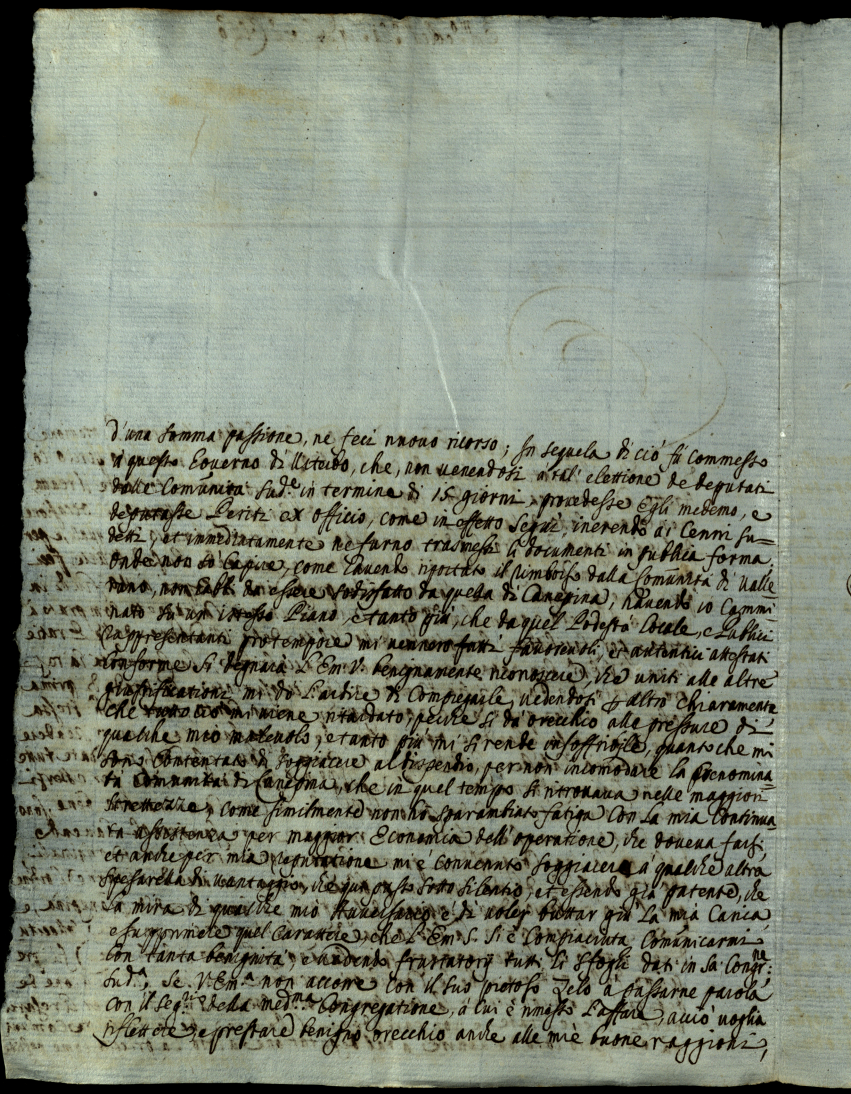 d'una somma passione, ne feci nuovo ricorso; In seguela di ciò fù commesso
à questo Governo di che, non venendosi à tal' elettione de deputati
dalle Comunità sud.e in termine di 15 giorni procedesse egli medemo, e
deputasse Periti ex officio, come in effetto seguì, inerendo ai Cenni su=
detti, et immediatamente ne furno trasmessi li documenti in publica forma,
Onde non sò Capire, come havendo riportato il rimborso dalla Comunità di Valle
rano, non debba essere sodisfatto da quella di Canepina, havendo io Cammi
nato su un istesso Piano, e tanto più, che da quel Podestà Locale, e Publici
Rappresentanti pro tempore mi vennero fatti favorevoli, et autentici attestati
Conforme si degnarà L'Em. V. benignamente riconoscere, che uniti alle altre
giustificationi mi dò L'ardire di Compiegarle, vedendosi altro chiaramente
che tutto ciò mi viene ritardato, perche si dà orecchio alle pressure di
qualche mio malevolo, e tanto più mi si rende insoffribile, quanto che mi
son Contentato di soggiacere al dispendio, per non incomodare la prenomina=
ta Comunità di Canepina, che in quel tempo si ritrovava nelle maggiori
strettezze, come similmente non hò sparambiato fatiga con La mia Continua=
ta assistenza per maggior Economia dell'operatione, che doveva farsi,
et anche per mia reputatione mi è Convenuto soggiacere à qualche altra
spesarella di vantaggio, che qui passo sotto silentio, et essendo già patente, che
La mira di qualche mio Avversario è di voler buttar giù La mia Carica,
e supprimere quel Carattere, che L'Em. S. si è Compiaciuta Comunicarmi
con tanta benignità, e vedendo frustatorij tutti li sfoghi dati in Sa. Congr.ne
sud.a, se V. Em.a non accorre con il suo pietoso Zelo à passarne parola
con il Seg.rio della med.ma Congregatione, à Cui è rimesso L'affare, acciò voglia
riflettere, e prestare benigno orecchio anche alle mie buone raggioni,